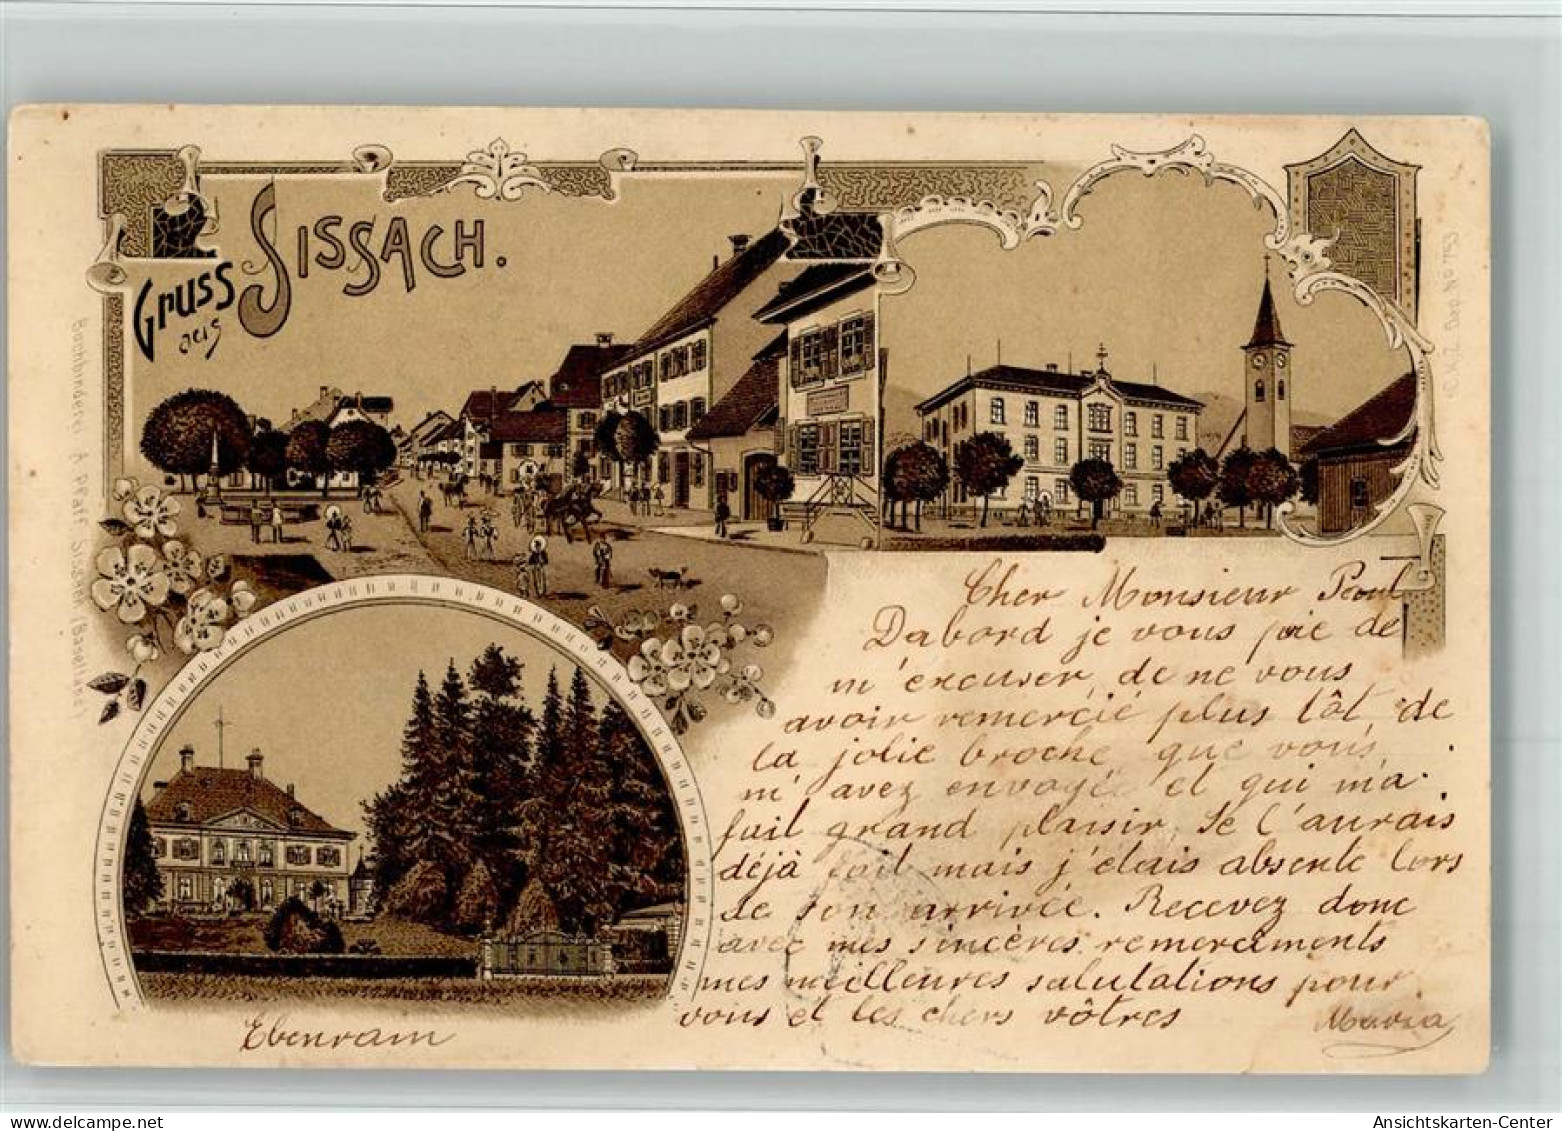 Gruss
aus
SISSACH.
Buchbinderei A. Pfaff Sissach (Baselland)
Dep. No 793
Cher Monsieur Paul
Dabord je vous prie de
m'excuser, de ne vous
avoir remercié plus tôt, de
la jolie broche que vous
m'avez envoyée et qui m'a
fait grand plaisir, Je l'aurais
déjà fait mais j'étais absente lors
de son arrivée. Recevez donc
avec mes sincères remerciments
mes meilleures salutations pour
vous et les chers vôtres
Maria
Ebenrain
Ansichtskarten-Center